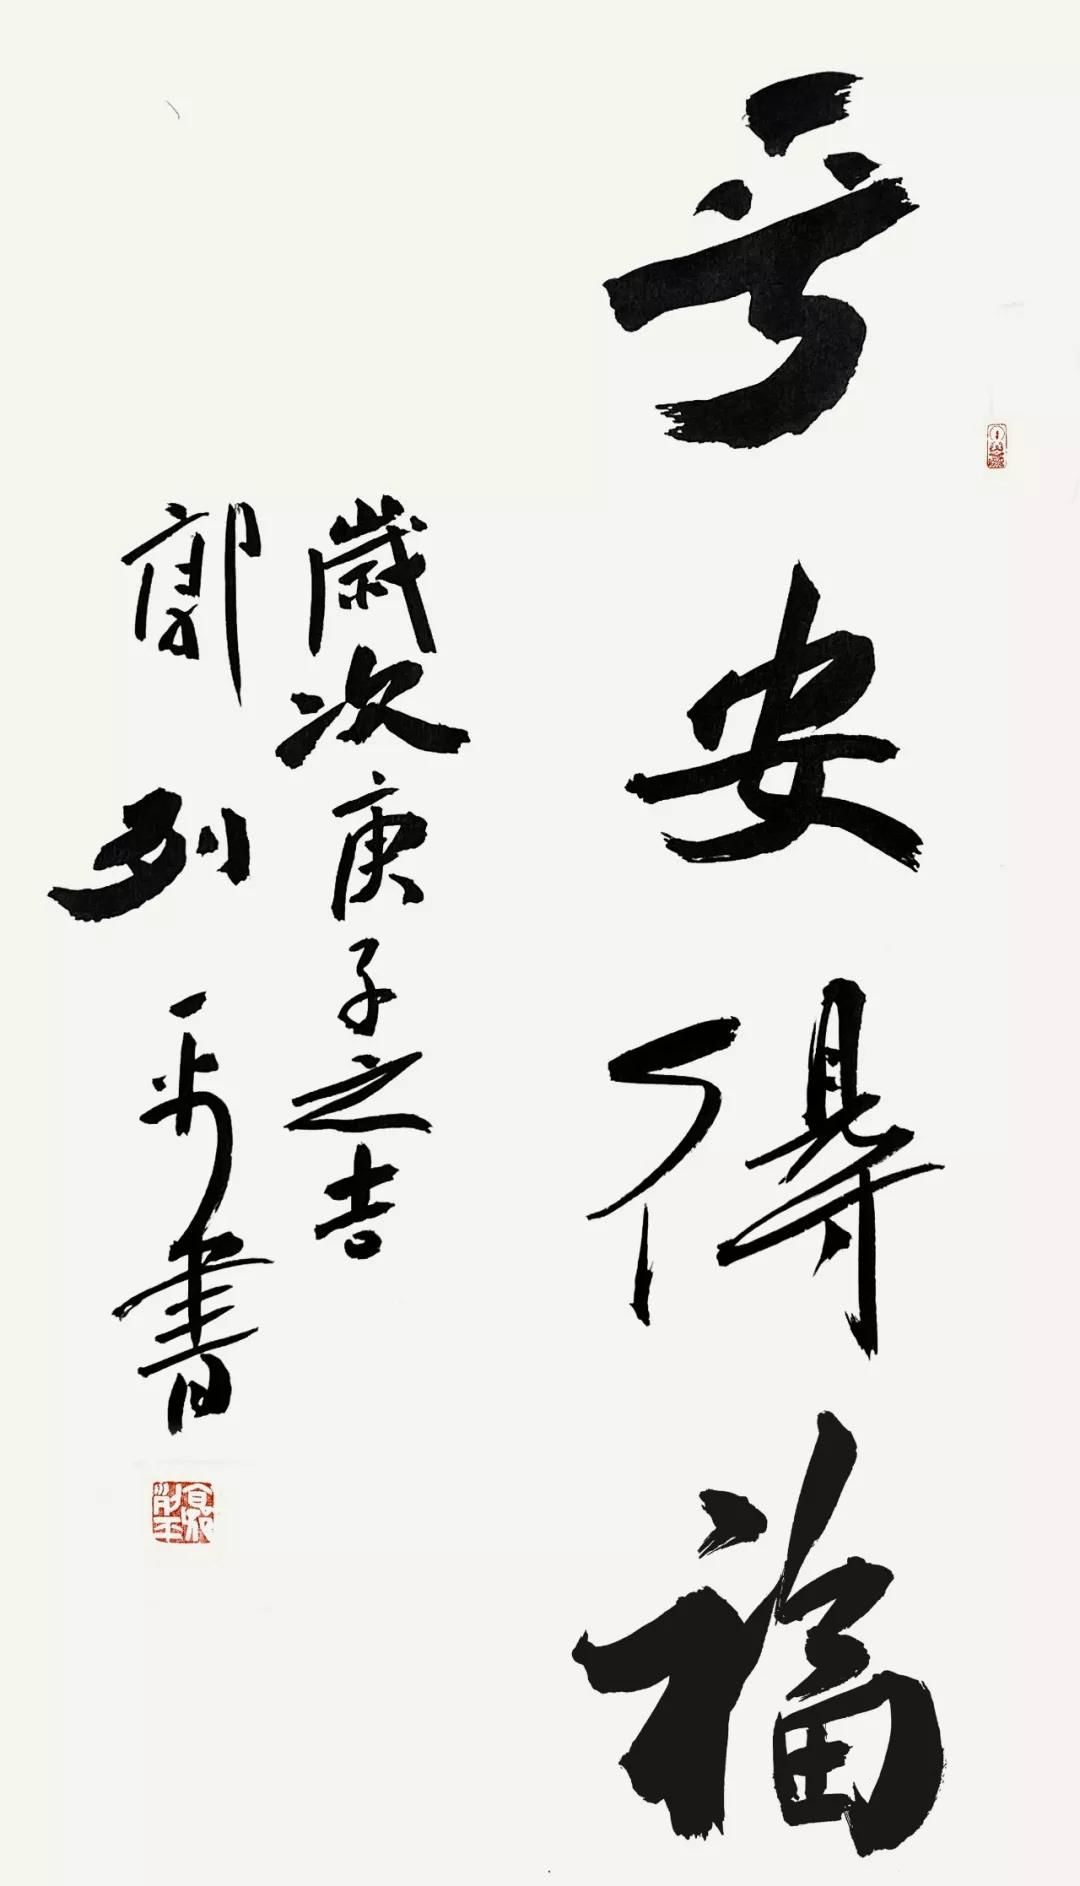 安得福
歲次庚子之吉
郭列平書
郭列平